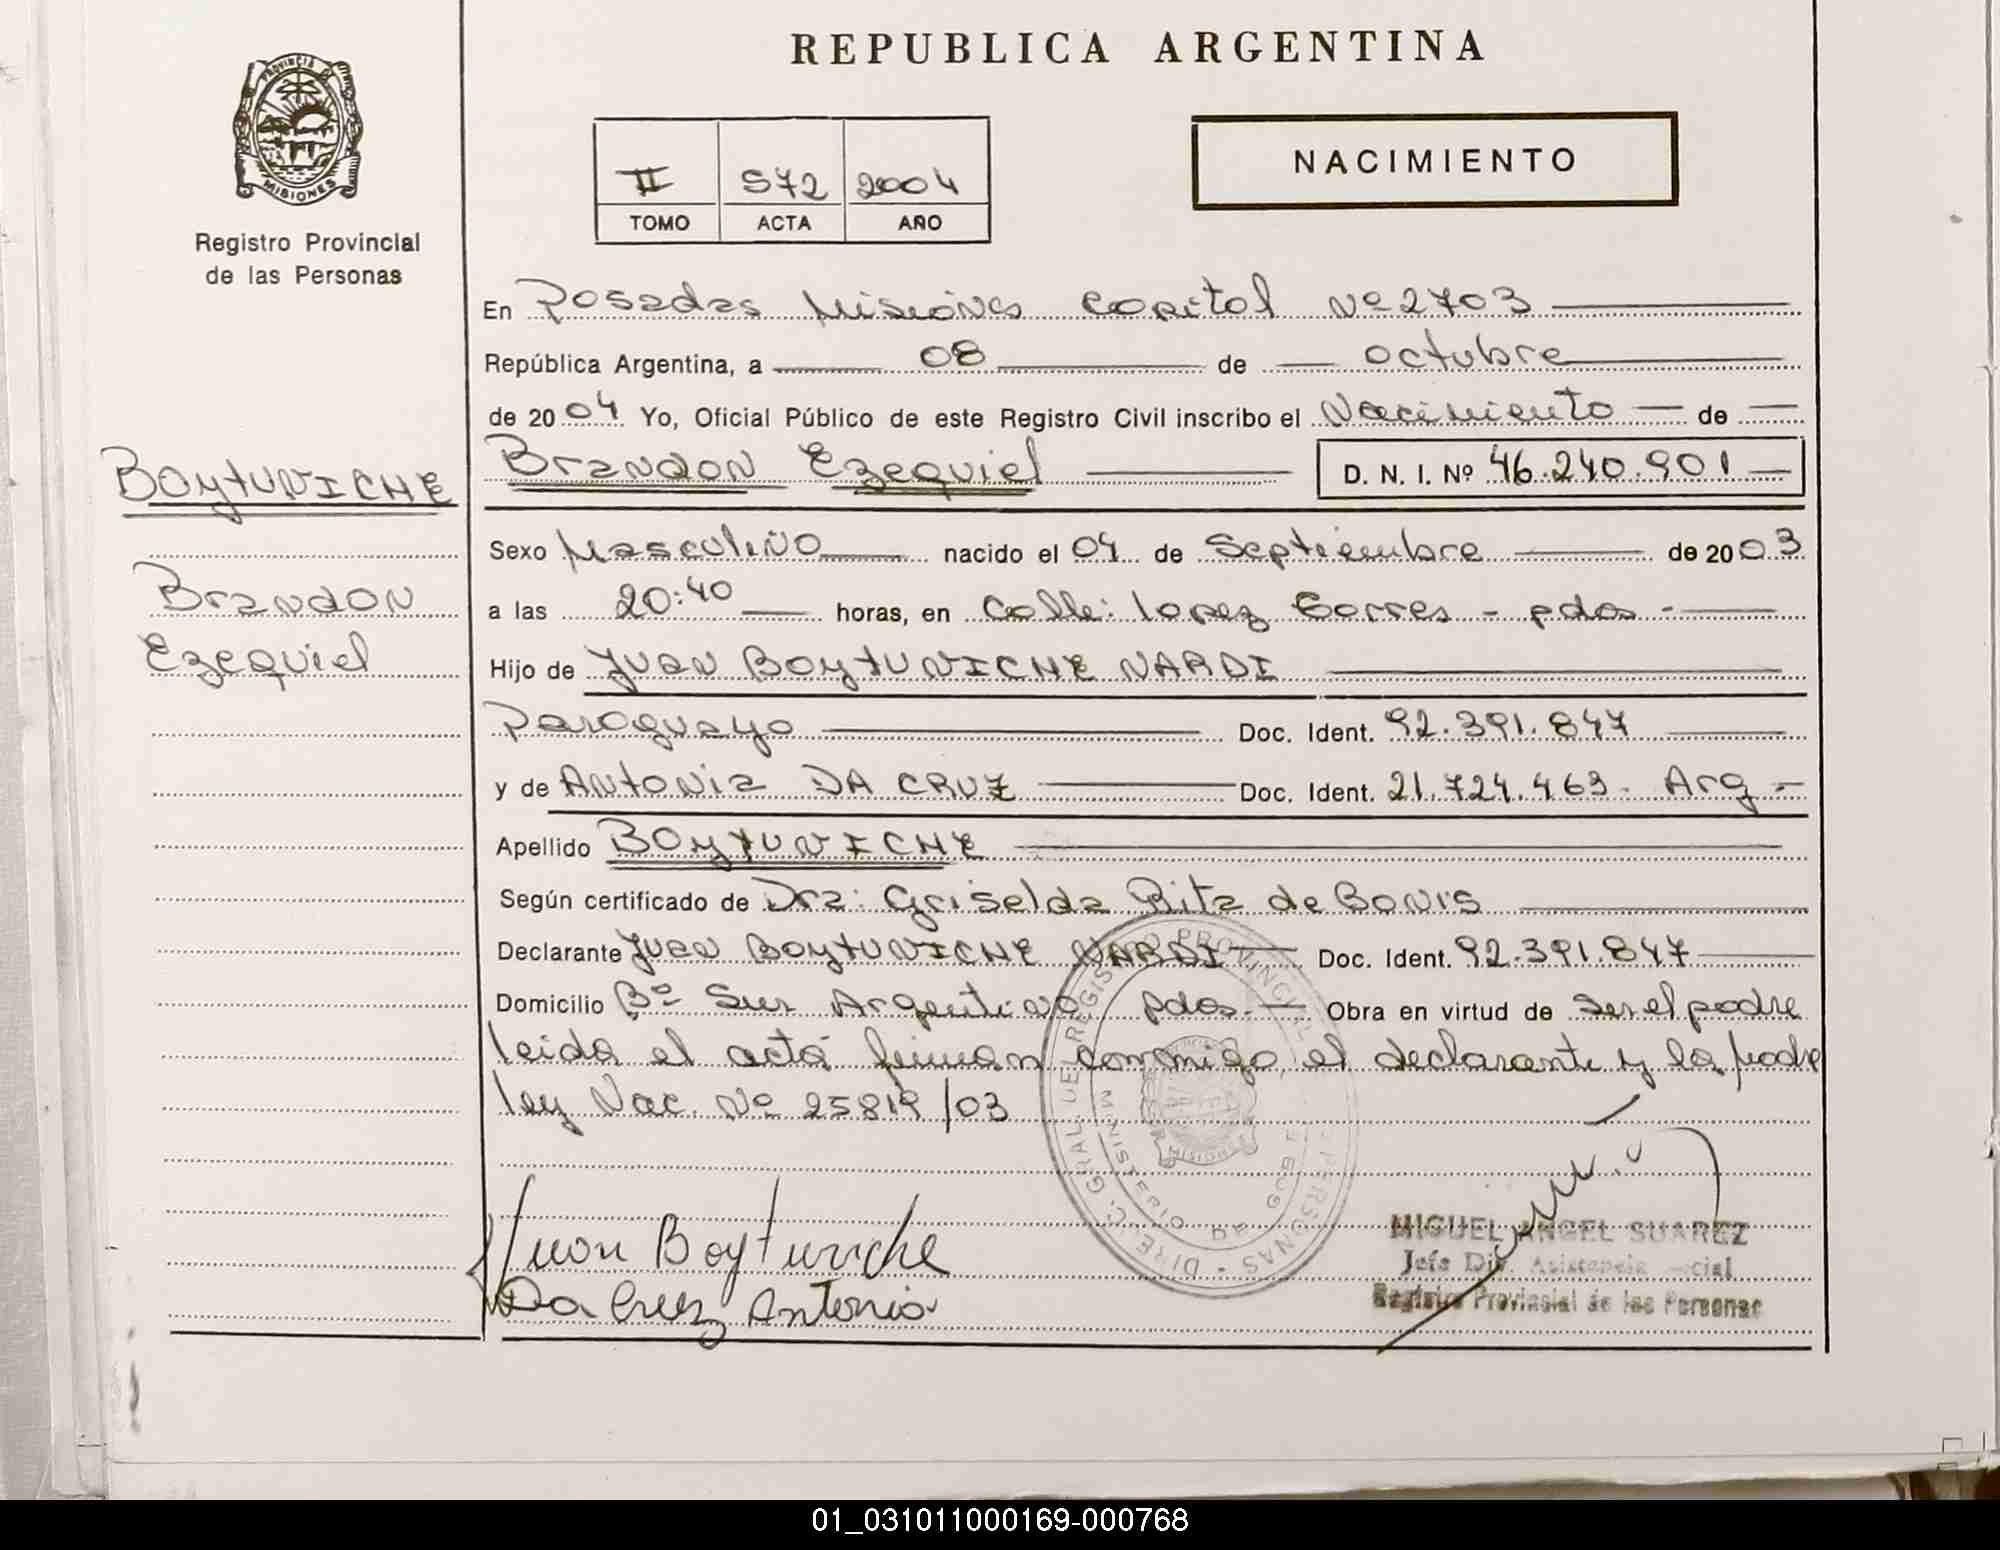 REPUBLICA ARGENTINA
PROVINCIA DE
MISIONES
Registro Provincial
de las Personas
II 572 2004
TOMO ACTA AÑO
NACIMIENTO
En Posadas Misiones Capital Nº 2703
República Argentina, a 08 de octubre
de 20 04 Yo, Oficial Público de este Registro Civil inscribo el Nacimiento de
BOYTUNICHE
Brandon Ezequiel D. N. I. Nº 46.240.901
Sexo Masculino nacido el 04 de Septiembre de 20 03
Brandon
a las 20:40 horas, en Calle: Lopez Torres - pdas -
Ezequiel
Hijo de Juan BOYTUNICHE NARDI
Paraguayo Doc. Ident. 92.391.847
y de ANTONIA DA CRUZ Doc. Ident. 21.724.463 - Arg -
Apellido BOYTUNICHE
Según certificado de Dra: Griselda Rita de Bonis
Declarante Juan BOYTUNICHE NARDI Doc. Ident. 92.391.847
Domicilio Bº Sur Argentino pdas. Obra en virtud de ser el padre
leida el acta firman conmigo el declarante y la madre
ley Nac. Nº 25819/03
DIREC. GRAL. DEL REGISTRO PROVINCIAL DE PERSONAS
MINISTERIO DE
MISIONES
Juan Boytuniche
Da Cruz Antonia
MIGUEL ANGEL SUAREZ
Jefe Div. Asistencia Social
Registro Provincial de las Personas
01_031011000169-000768